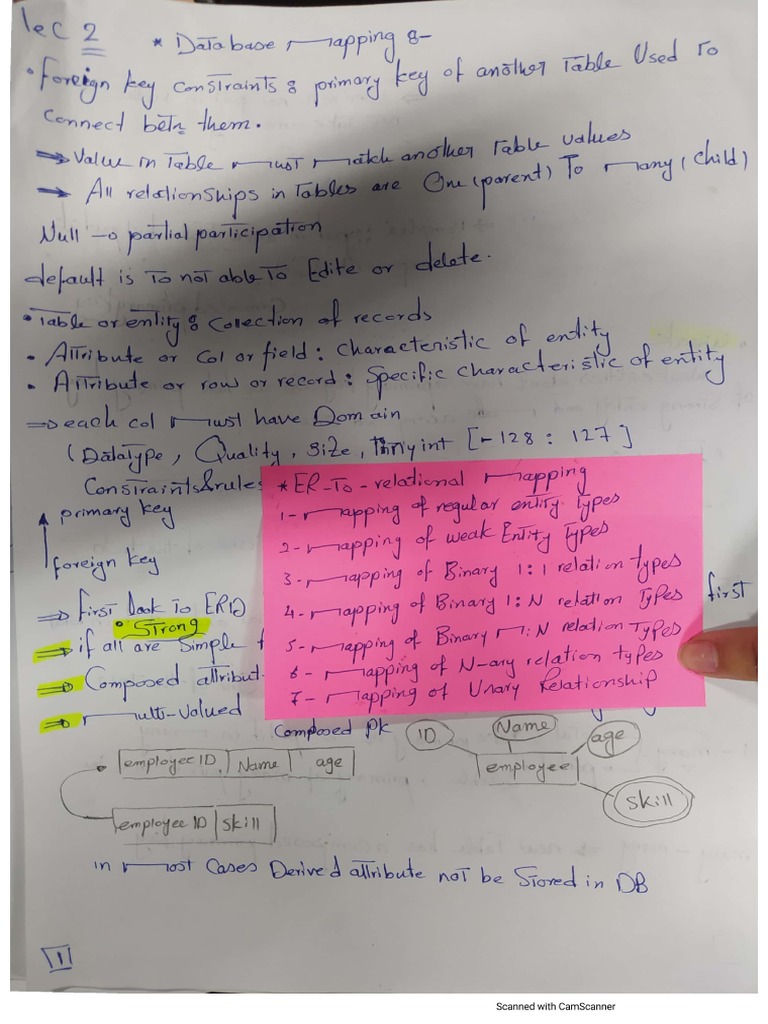 Lec 2
* Database Mapping :-
• Foreign key constraints : primary key of another Table Used To
Connect betn them.
⇒ Value in Table Must Match another Table values
→ All relationships in Tables are One (parent) To Many (child)
Null → partial participation
default is To not able To Edite or delete.
• Table or entity : Collection of records
• Attribute or Col or field : Characteristic of entity
• Attribute or row or record : Specific characteristic of entity
⇒ each col Must have Domain
(Datatype, Quality, Size, Tinyint [-128 : 127]
Constraints & rules
primary key
foreign key
⇒ First look To ERD
first
• Strong
⇒ if all are Simple
⇒ Composed attribut
⇒ Multi-valued
* ER-To-relational Mapping
1- Mapping of regular entity Types
2- Mapping of weak Entity Types
3- Mapping of Binary 1:1 relation types
4- Mapping of Binary 1:N relation Types
5- Mapping of Binary M:N relation Types
6- Mapping of N-ary relation types
7- Mapping of Unary Relationship
Composed Pk
ID
Name
age
employee
Skill
employee ID Name age
employee ID skill
in Most Cases Derived attribute not be Stored in DB
1
Scanned with CamScanner